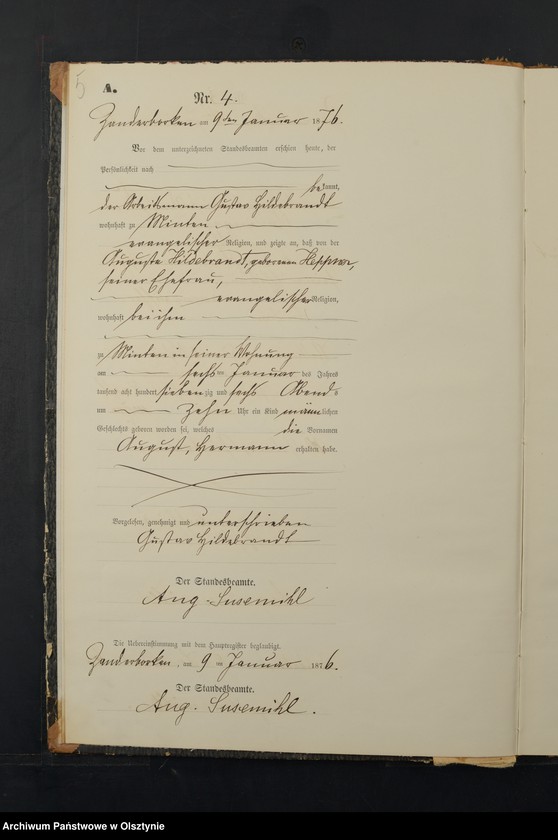 5
A.
Nr. 4.
Zanderborken am 9ten Januar 1876.
Vor dem unterzeichneten Standesbeamten erschien heute, der
Persönlichkeit nach
bekannt,
der Arbeitsmann Gustav Hildebrandt
wohnhaft zu Minten
evangelischer Religion, und zeigte an, daß von der
Auguste Hildebrandt, geborenen Heppner,
seiner Ehefrau,
evangelischer Religion,
wohnhaft bei ihm
zu Minten in seiner Wohnung
am sechsten Januar des Jahres
tausend acht hundert siebenzig und sechs Abends
um Zehn Uhr ein Kind männlichen
Geschlechts geboren worden sei, welches die Vornamen
August, Hermann erhalten habe.
Vorgelesen, genehmigt und unterschrieben
Gustav Hildebrandt
Der Standesbeamte.
Aug. Susemihl
Die Uebereinstimmung mit dem Hauptregister beglaubigt.
Zanderborken, am 9 ten Januar 1876.
Der Standesbeamte.
Aug. Susemihl.
Archiwum Państwowe w Olsztynie